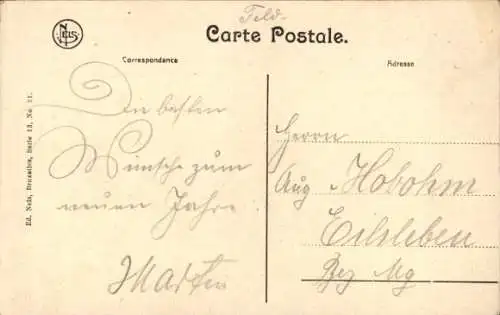 Feld-
NELS
Carte Postale.
Correspondance
Adresse
Die besten
Wünsche zum
neuen Jahre.
Martin
Herrn
Aug Hobohm
Eilsleben
Bez Mg
Ed. Nels, Bruxelles, Serie 13, No. 11.